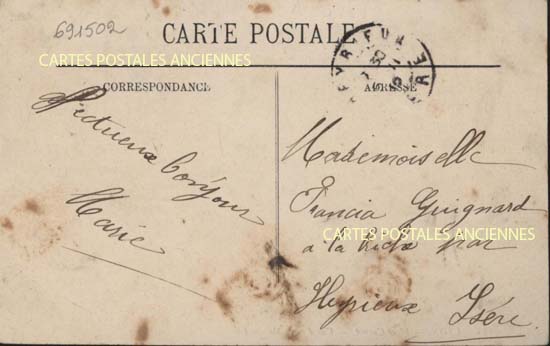 691502
CARTE POSTALE
CARTES POSTALES ANCIENNES
CORRESPONDANCE
ADRESSE
bonjour
Marie
Mademoiselle
Francia Guignard
CARTES POSTALES ANCIENNES
à la par
Heyrieux Isère